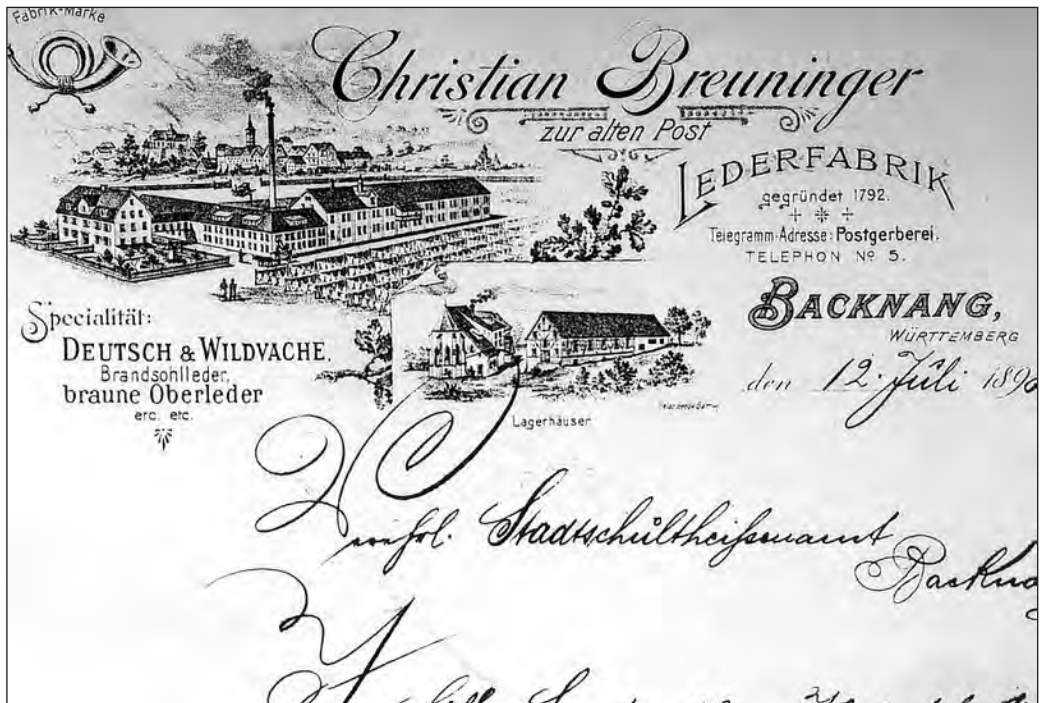 Fabrik-Marke
Christian Breuninger
zur alten Post
LEDERFABRIK
gegründet 1792.
Telegramm-Adresse: Postgerberei.
TELEPHON Nº 5.
BACKNANG,
WÜRTTEMBERG
den 12. Juli 189
Specialität:
DEUTSCH & WILDVACHE,
Brandsohlleder,
braune Oberleder
etc. etc.
Lagerhäuser
Stadtschultheißenamt
Backna